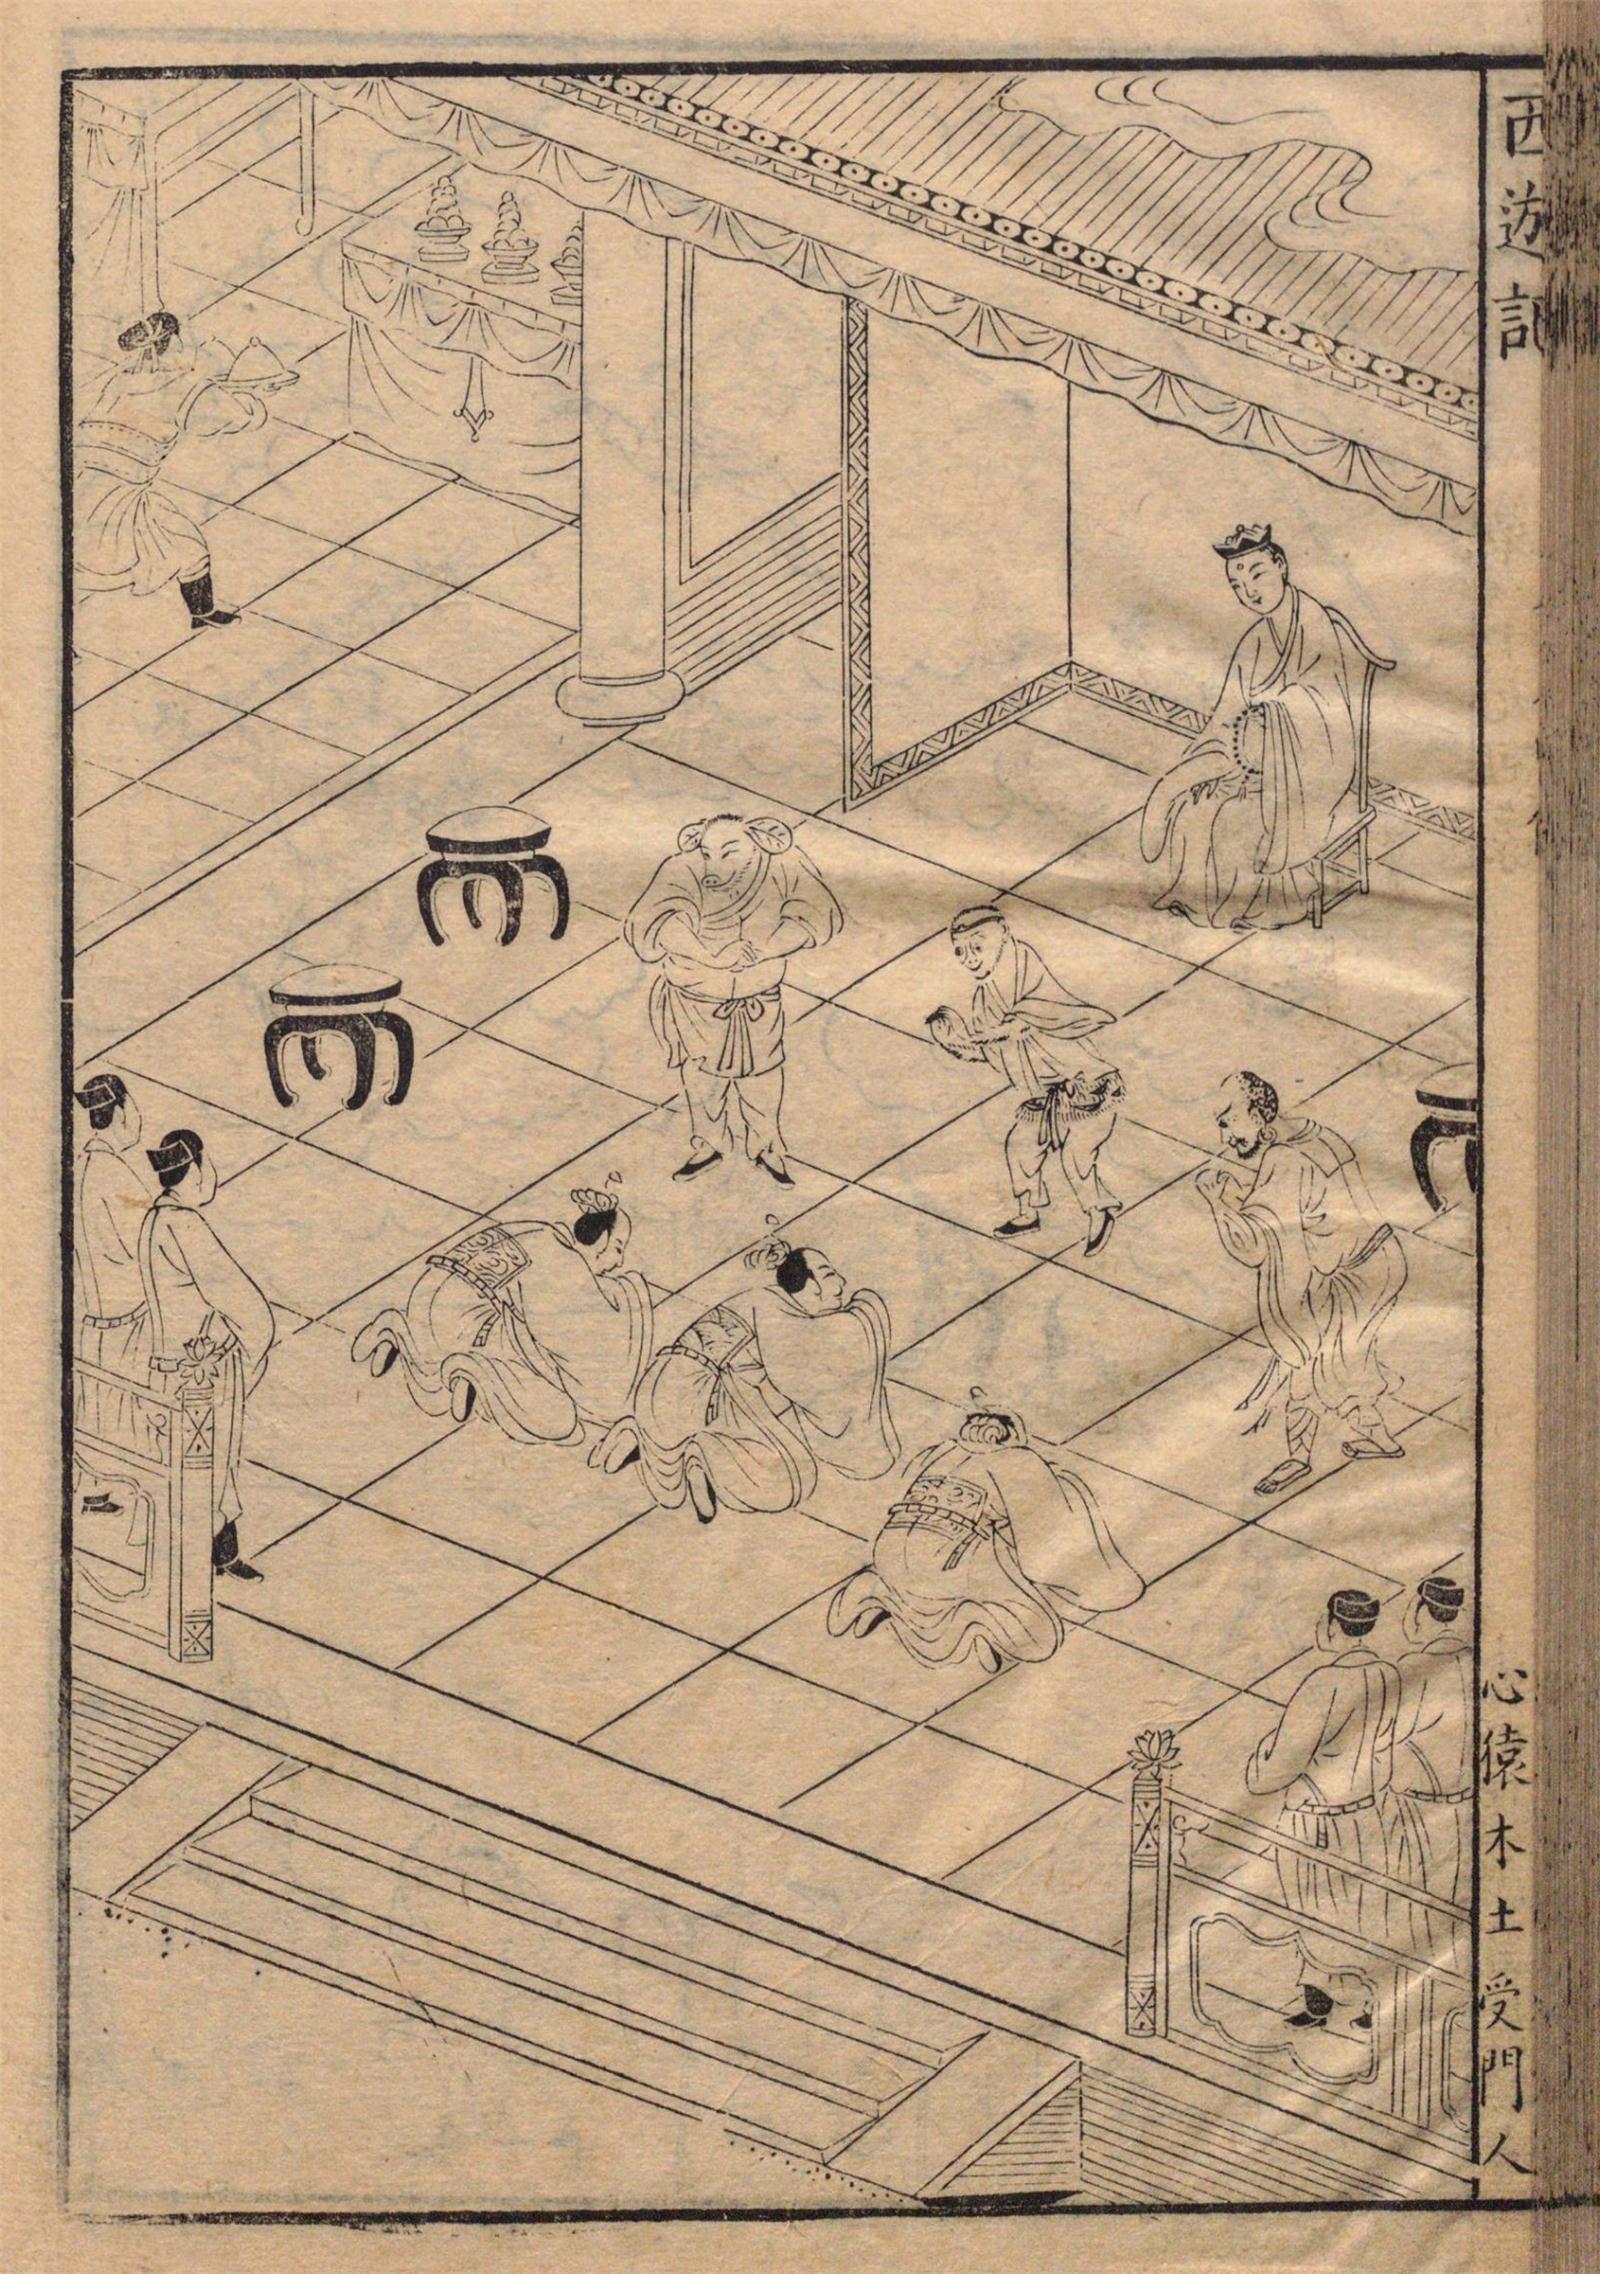 西遊記
心猿木土受門人